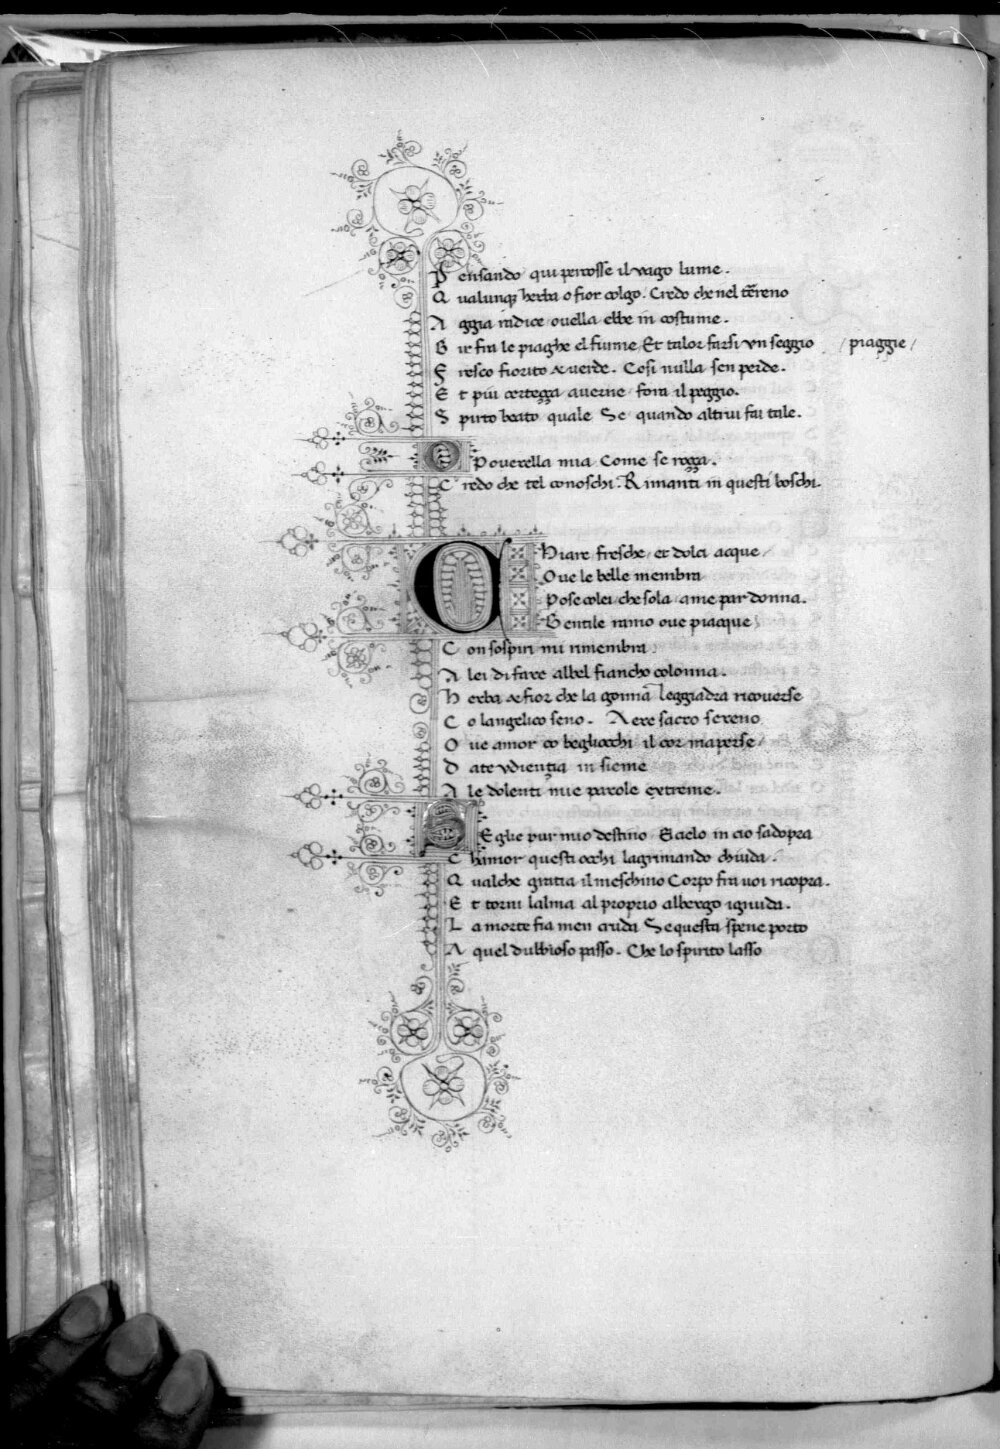 P ensando qui percosse il vago lume.
Q ualunqз herba o fior colgo. Credo che nel tēreno
A ggia radice ouella ebbe in costume.
G ir fra le piaghe el fiume, Et talor farsi vn seggio / piaggie /
F resco fiorito & uerde. Cosi nulla sen perde.
E t piu certezza auerne fora il peggio.
S pirto beato quale Se quando altrui fai tale.
O Pouerella mia Come se rozza.
C redo che tel conoschi. Rimanti in questi boschi.
C Hiare fresche, et dolci acque,
Oue le belle membra
Pose colei che sola a me par donna.
Gentile ramo oue piacque,
C on sospiri mi rimembra,
A lei di fare al bel fiancho colonna.
H erba & fior che la gonna Leggiadra ricouerse
C o langelico seno. Aere sacro sereno
O ue amor co begliocchi il cor maperse,
D ate vdienzia insieme
A le dolenti mie parole extreme.
S Eglie pur mio destino El cielo in cio sadopra
C hamor questi occhi lagrimando chiuda.
Q ualche gratia il meschino Corpo fra uoi ricopra.
E t torni lalma al proprio albergo ignuda.
L a morte fia men cruda Se questa spene porto
A quel dubbioso passo. Che lo spirito lasso